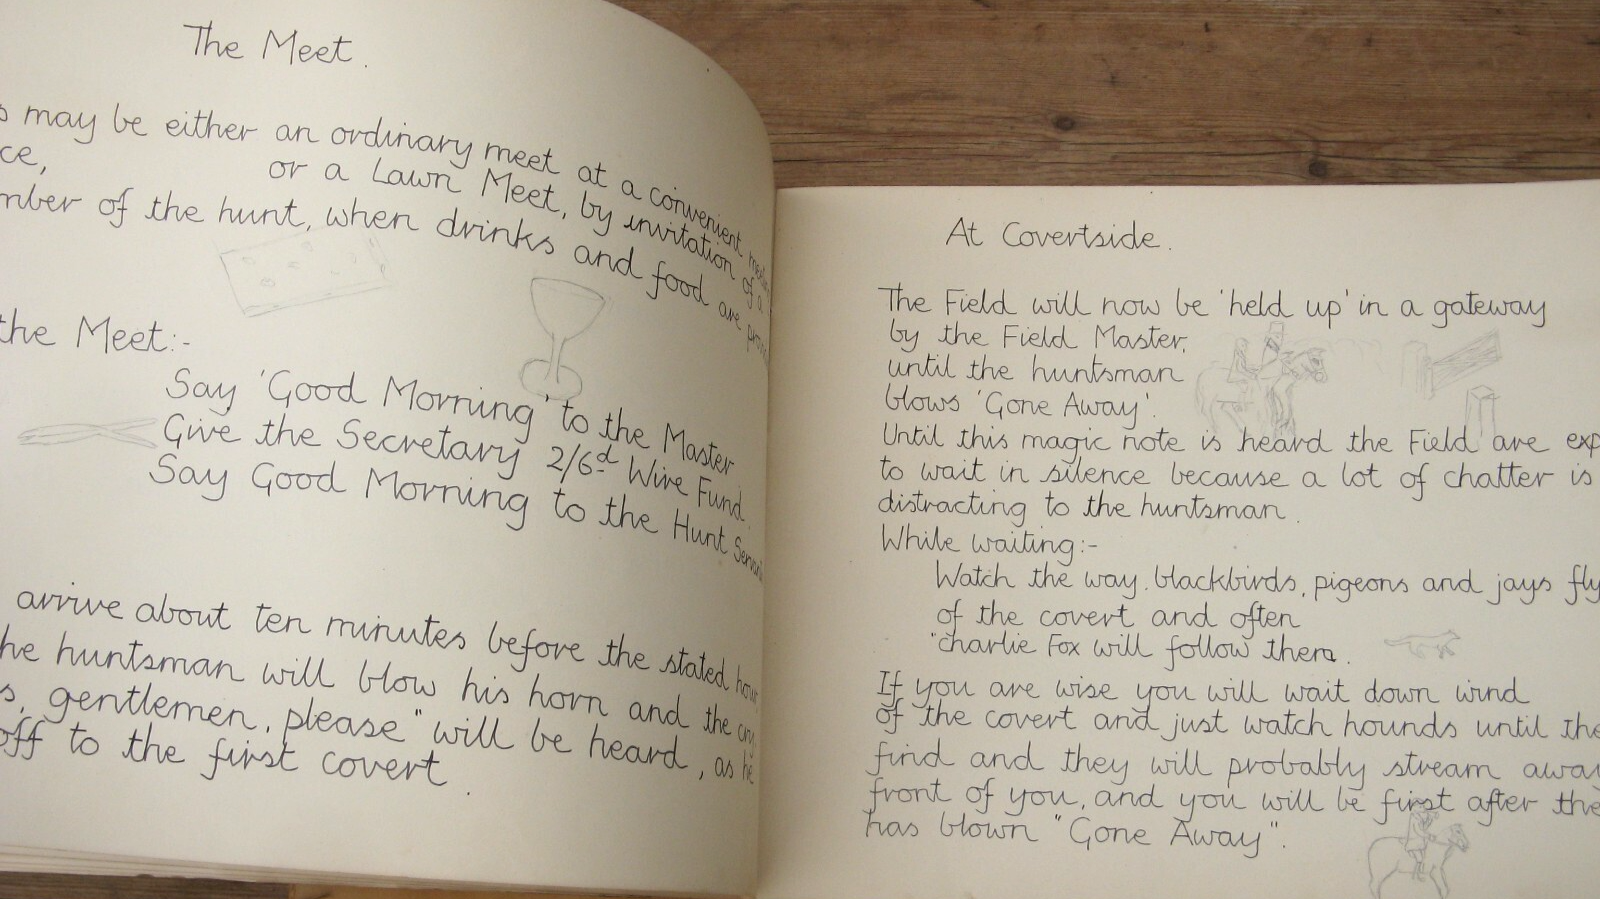 The Meet.
may be either an ordinary meet at a convenient
or a Lawn Meet, by invitation of a
of the hunt, when drinks and food are
the Meet:-
Say 'Good Morning' to the Master
Give the Secretary 2/6d Wire Fund.
Say Good Morning to the Hunt
arrive about ten minutes before the stated hour,
huntsman will blow his horn and the cry
gentlemen, please" will be heard, as he
off to the first covert.
At Covertside.
The Field will now be 'held up' in a gateway
by the Field Master,
until the huntsman
blows 'Gone Away'.
Until this magic note is heard the Field are
to wait in silence because a lot of chatter is
distracting to the huntsman.
While waiting:-
Watch the way blackbirds, pigeons and jays fly
of the covert and often
"charlie Fox will follow them.
If you are wise you will wait down wind
of the covert and just watch hounds until
find and they will probably stream
front of you, and you will be first after
has blown "Gone Away".